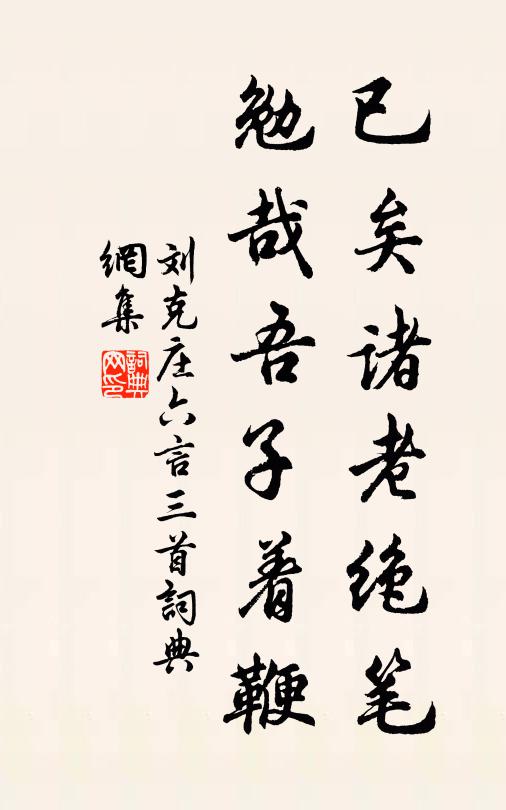 已矣诸老绝笔
勉哉吾子着鞭
刘克庄六言三首詞典
網集
詞典
网印